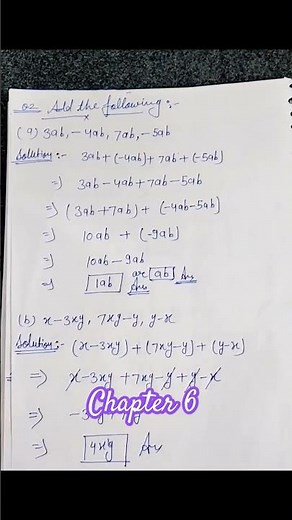 Q2. Add the following:-
(a) 3ab, - 4ab, 7ab, -5ab
Solution:- 3ab + (-4ab) + 7ab + (-5ab)
⇒ 3ab - 4ab + 7ab - 5ab
⇒ (3ab + 7ab) + (-4ab - 5ab)
⇒ 10ab + (-9ab)
⇒ 10ab - 9ab
⇒ 1ab Ans or ab Ans
(b) x - 3xy, 7xy - y, y - x
Solution:- (x - 3xy) + (7xy - y) + (y - x)
⇒ x - 3xy + 7xy - y + y - x
Chapter 6
⇒ 4xy Ans